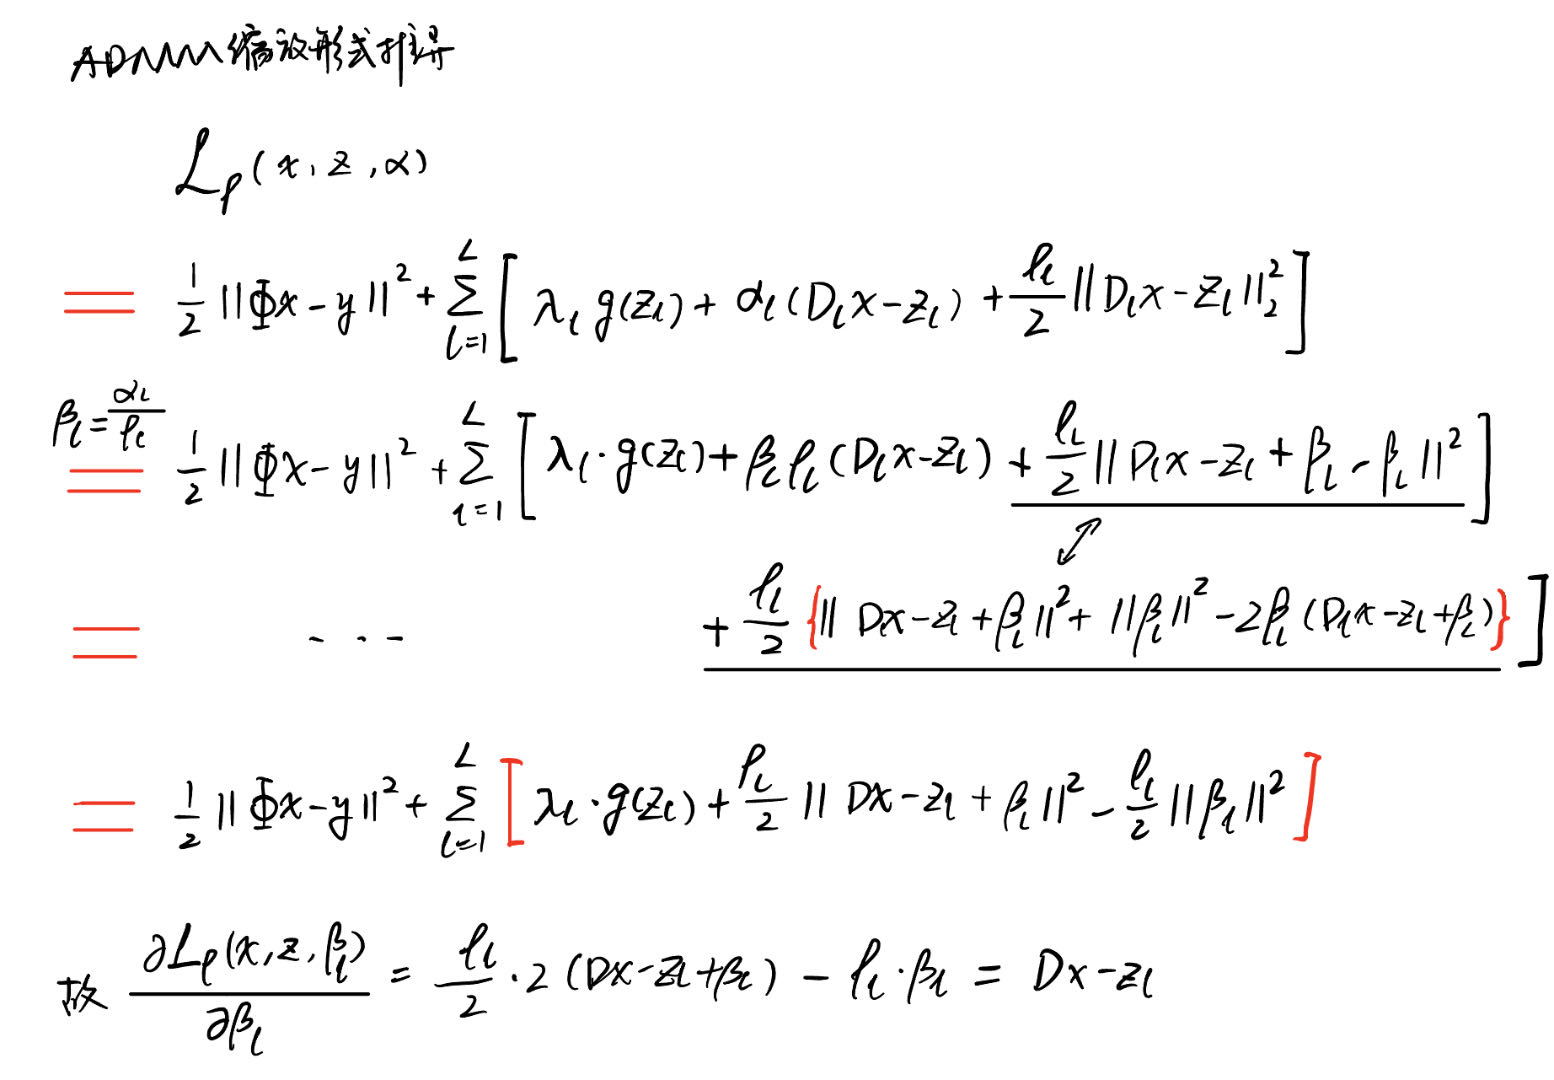 ADMM缩放形式推导
L_ρ(x, z, α)
= 1/2 ||Φx-y||² + Σ_{l=1}^{L} [ λ_l g(z_l) + α_l(D_l x-z_l) + ρ_l/2 ||D_l x-z_l||₂² ]
β_l = α_l/ρ_l
= 1/2 ||Φx-y||² + Σ_{l=1}^{L} [ λ_l·g(z_l) + β_l ρ_l(D_l x-z_l) + ρ_l/2 ||D_l x-z_l+β_l-β_l||² ]
= ... + ρ_l/2 {||Dx-z_l+β_l||² + ||β_l||² - 2β_l(D_l x-z_l+β_l)} ]
= 1/2 ||Φx-y||² + Σ_{l=1}^{L} [ λ_l·g(z_l) + ρ_l/2 ||Dx-z_l+β_l||² - ρ_l/2 ||β_l||² ]
故 ∂L_ρ(x, z, β_l)/∂β_l = ρ_l/2 · 2(Dx-z_l+β_l) - ρ_l·β_l = Dx-z_l